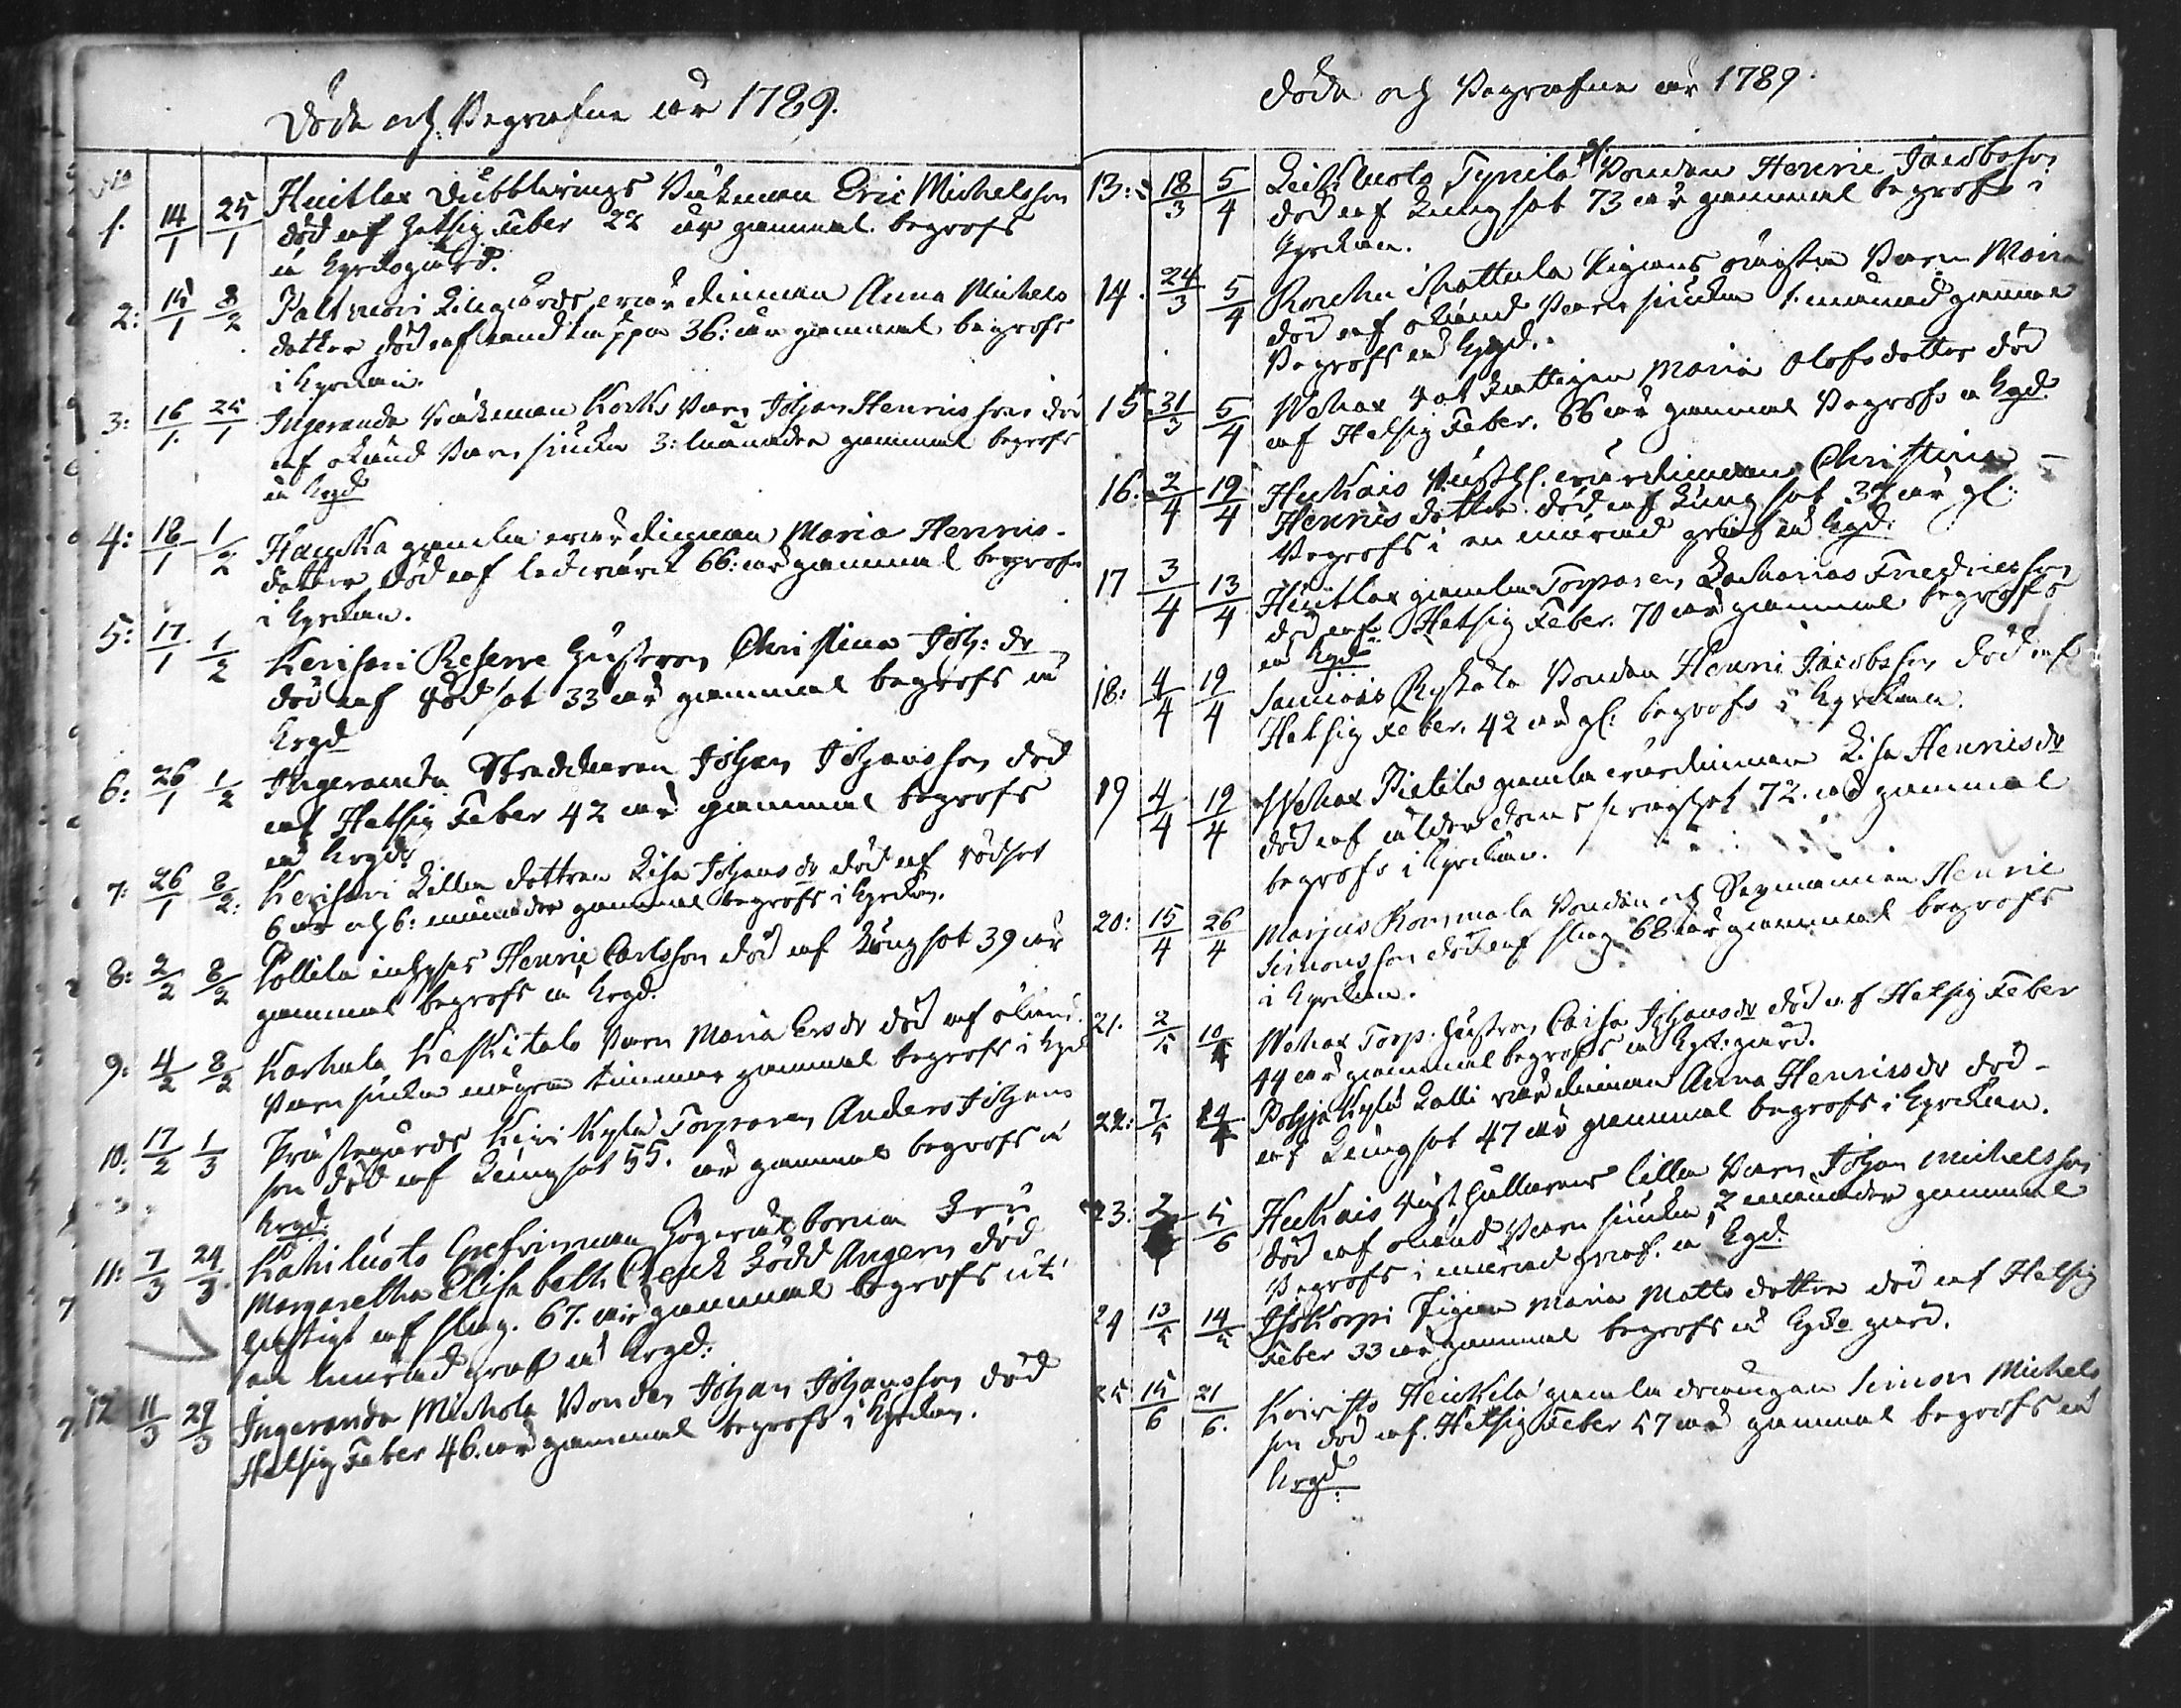 Döde och Begrafne år 1789.
No
1. 14/1 25/1 Huitlax Dubblerings Båtsman Eric Michelsson
död af hetsig Feber 22 år gammal. begrofs
å kyrkogård.
2: 15/1 8/2 Paltvuori Lillgårds wärdinnan Anna Michels
dotter död af 36: år gammal begrofs
i kyrckan.
3: 16/1. 25/1 Ingeranda Båtsman Korks Barn Johan Henricsson död
af okänd Barn siuka 3: månader gammal begrofs
å krgd
4: 18/1 1/2 Haucka gamla wärdinnan Maria Henrics-
dotter död af ledwärck 66: år gammal begrofs
i kyrckan.
5: 17/1 1/2 Kerisari Reserve hustrun Christina Joh: dr
död af rödsot 33 år gammal begrofs å
krgd
6: 26/1 1/2 Ingeranda Skreddaren Johan Johansson död
af Hetsig Feber 42 år gammal begrofs
å krgd:
7: 26/1 8/2: Kerisari Lilla dottren Lisa Johans dr död af rödsot
6 år och 6: månader gammal begrofs i kyrckan.
8: 2/2 8/2 Pållila inhyses Henric Carlsson död af Lungsot 39 år
gammal begrofs å krgd.
9: 4/2 8/2 Karhula Keskitalo Barn Maria Ersdr död af okänd
Barn siuka några timmar gammal begrofs i kgd
10: 17/2 1/3 Prästegårds Kivi Kylä Torparen Anders Johans
son död af Lungsot 55. år gammal begrofs å
krgd.
11: 7/3 24/3. Kahiluoto Grefvinnan Högwälborna Fru
Margaretha Elisabeth Creutz Född Ungern död
hastigt af slag. 67. år gammal begrofs uti
en murad graf å krgd:
12 11/3 29/3 Ingeranda Michola Bonden Johan Johansson död
Hetsig Feber 46. år gammal begrofs i kyrckan.
Döde och Begrafne år 1789.
13: 18/3 5/4 Leikluoto Tynilä Bonden Henric Jacobsson
död af Lungsot 73 år gammal begrofs i
kyrckan.
14. 24/3 5/4 Rauhu Skattula Pigans oägta Barn Maria
död af okänd Barnsiucka 1. månad gammal
Begrofs å kygd.
15. 31/3 5/4 Wehax Rot Enkan Maria Olofsdotter död
af Hetsig Feber. 66 år gammal Begrofs å kgd.
16. 2/4 19/4 Huckais wärdinnan Christina
Henricsdotter död af Lungsot 37 år gl:
Begrofs i en murad graf å kgd.
17 3/4 13/4 Huitlax gamla Torparen Zacharias Fredricsson
död af Hetsig Feber. 70 år gammal begrofs
å kgd.
18: 4/4 19/4 Sauvois Ryskälä Bonden Henric Jacobsson död af
Hetsig Feber. 42 år gl: begrofs i kyrckan.
19 4/4 19/4 Wehax Pietilä gamla wärdinnan Lisa Henricsdr
död af ålderdoms swaghet 72. år gammal
begrofs i kyrckan.
20: 15/4 26/4 Marjus Kommola Bonden och Sexmannen Henric
Simonsson död af slag 68 år gammal begrofs
i kyrckan.
21. 2/5 10/5 Wehax Torp. hustrun Caisa Johansdr död af Hetsig Feber
44 år gammal begrofs å kyrk:gård.
22: 7/5 24/5 Pohja Kylä Lalli wärdinnan Anna Henricsdr död
af Lungsot 47 år gammal begrofs i kyrckan.
23: 5/6 Huckais Rusthållarens lilla Barn Johan Michelsson
död af okänd Barnsiucka 2 månader gammal
Begrofs i murad graf. å kgd
24 13/5 14/5 Isokorpi Pigan Maria Matts dotter död af Hetsig
Feber 33 år gammal begrofs å kyrko gård.
25 15/6 21/6. Koivisto Heickilä gamla drängen Simon Michels
son död af. Hetsig Feber 57 år gammal begrofs å
krgd: